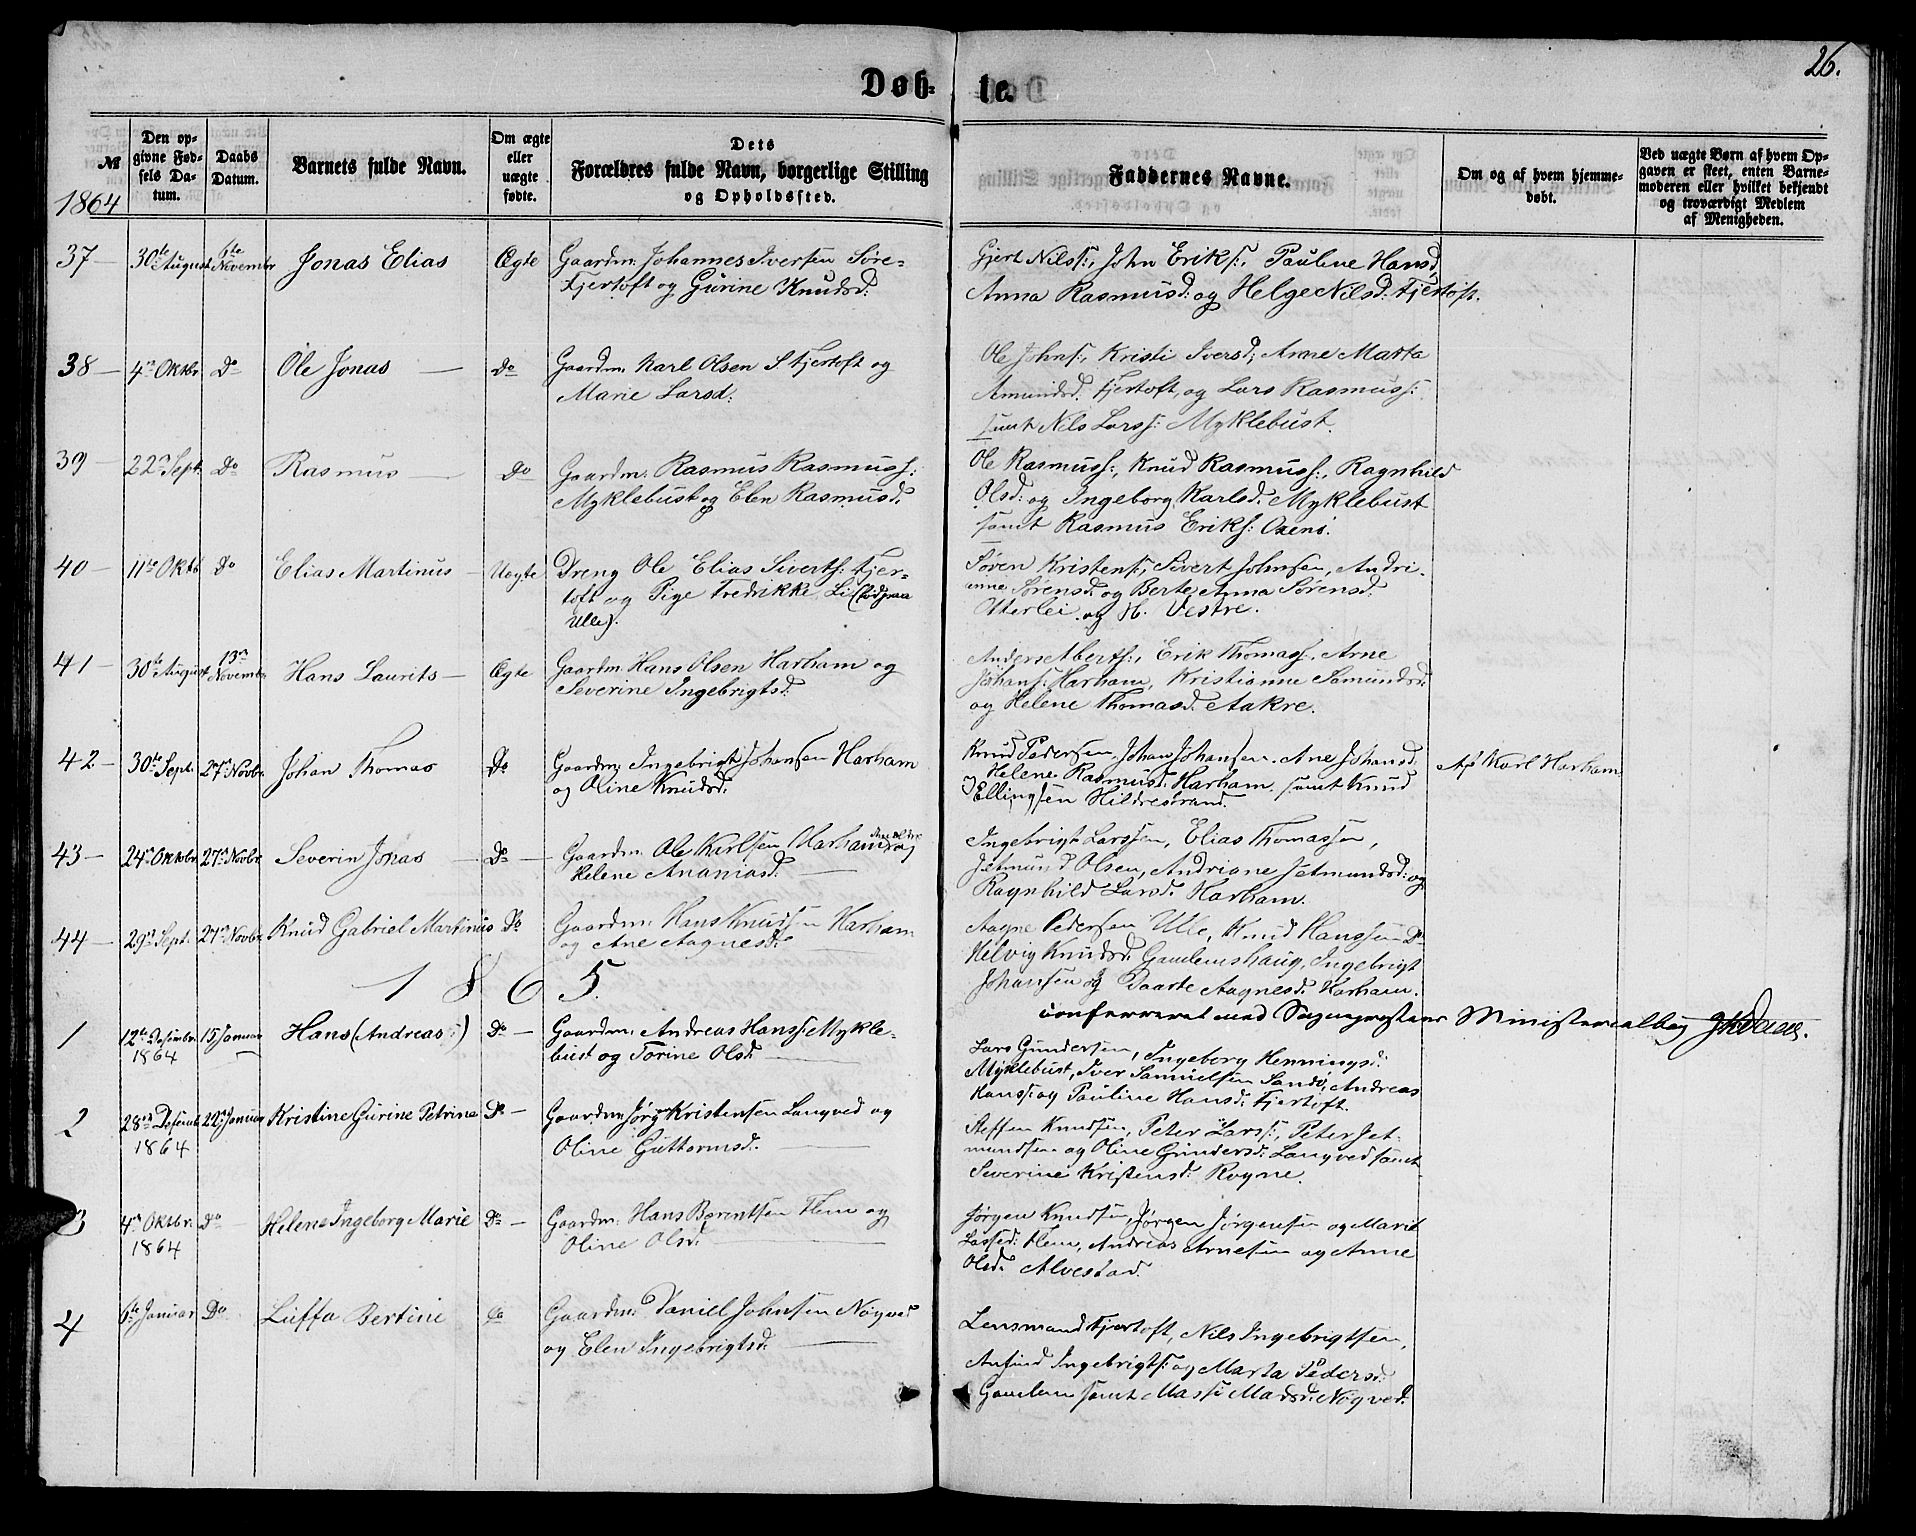 26.
Døb- te.
№
Den op-
givne Fød-
sels Da-
tum.
Daabs
Datum.
Barnets fulde Navn.
Om ægte
eller
uægte
fødte.
Dets
Forældres fulde Navn, borgerlige Stilling
og Opholdssted.
Faddernes Navne.
Om og af hvem hjemme-
døbt.
Ved uægte Børn af hvem Op-
gaven er skeet, enten Barne-
moderen eller hvilket bekjendt
og troværdigt Medlem
af Menigheden.
1864
37 30te August 6te Novembr Jonas Elias Ægte Gaardm. Johannes Iversen Søre-
Fjertoft og Gurine Knudsd:
Gjert Nilss:, John Eriks:, Pauline Hansd,
Anna Rasmusd: og Helge Nilsd: Fjertoft.
38 4de Oktbr. Do Ole Jonas Do Gaardm. Karl Olsen S. Fjertoft og
Marie Larsd:
Ole Johns:, Kristi Iversd; Anne Marta
Amundsd. Fjertoft, og Lars Rasmuss:
samt Nils Larss: Myklebust.
39 22n Sept. Do Rasmus Do Gaardm. Rasmus Rasmuss:
Myklebust og Elen Rasmusd.
Ole Rasmuss:, Knud Rasmuss:, Ragnhild
Olsd: og Ingeborg Karlsd: Myklebust
samt Rasmus Eriks: Oxenö.
40 11te Oktb Do Elias Martinus Uegte Dreng Ole Elias Siverts: Fjer-
toft og Pige Fredrikke Li (Födt paa
Ulle).
Søren Kristens:, Sivert Johnsen, Andri-
anne Sørensd: og Berte Anna Sørensd.
Otterlei og H. Vestre.
41 30te August 13n Novembr Hans Laurits Ægte Gaardm. Hans Olsen Harham og
Severine Ingebrigtsd:
Anders Aberts:, Erik Thomass:, Arne
Johans: Harham, Kristianne Samundsd:
og Helene Thomasd. Aakre.
42 30te Sept. 27n Novbr. Johan Thomas Do Gaardm. Ingebrigt Johansen Harham
og Oline Knudsd:
Knud Pedersen, Johan Johansen, Ane Johansd.
Helene Rasmusd: Harham, samt Knud
Ellingsen Hildrestrand.
Af Karl Harham
43 24n Oktobr. 27n Novbr. Severin Jonas Do Gaardm. Ole Karlsen Harham og
Helene Ananiasd.
Ingebrigt Larssen, Elias Thomassen,
Jetmund Olsen, Andriane Jetmundsd: og
Ragnhild Larsd. Harham.
44 29n Sept. 27n Novbr. Knud Gabriel Martinus Do Gaardm. Hans Knudsen Harham
og Ane Aagnesd.
Aagne Pedersen Ulle, Knud Hanssen Do
Helvig Knudsd. Gamlemshaug, Ingebrigt
Johansen og Daarte Aagnesd. Harham.
1865.
Confereret med Sognepræstens Ministerialbog
1 12te Desembr. 1864 15 Januar Hans (Andreas:) Do Gaardm. Andreas Hanss: Mykle-
bust og Torine Olsd:
Lars Gundersen, Ingeborg Henningsd:
Myklebust, Iver Samuelsen Sandö, Andreas
Hanss: og Pauline Hansd. Fjertoft.
2 28n Desembr 1864 22n Januar Kristine Gurine Petrine Do Gaardm. Jörgen Kristensen Langved og
Oline Guttormsd:
Steffen Knudsen, Peter Larss:, Peter Jet-
mundsen og Oline Gundersd: Langved samt
Severine Kristensd: Rogne.
3 4n Oktbr. 1864 Do Helene Ingeborg Marie Do Gaardm. Hans Berentsen Flem og
Oline Olsd:
Jørgen Knudsen, Jørgen Jørgensen og Marie
Lassed: Flem, Andreas Arnesen og Anne
Olsd. Alvestad.
4 6te Januar Do Luffa Bertine Do Gaardm. Daniel Johnsen Nogved
og Elen Ingebrigtsd:
Lensmand Fjertoft, Nils Ingebrigtsen,
Anfind Ingebrigts: og Marta Pedersd:
Gamlem samt Massi Madsd: Nogved.